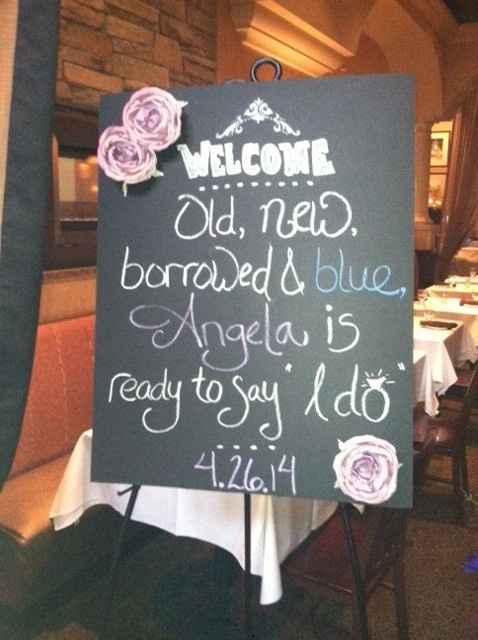 WELCOME
Old, new,
borrowed & blue,
Angela is
ready to say "I do"
4.26.14